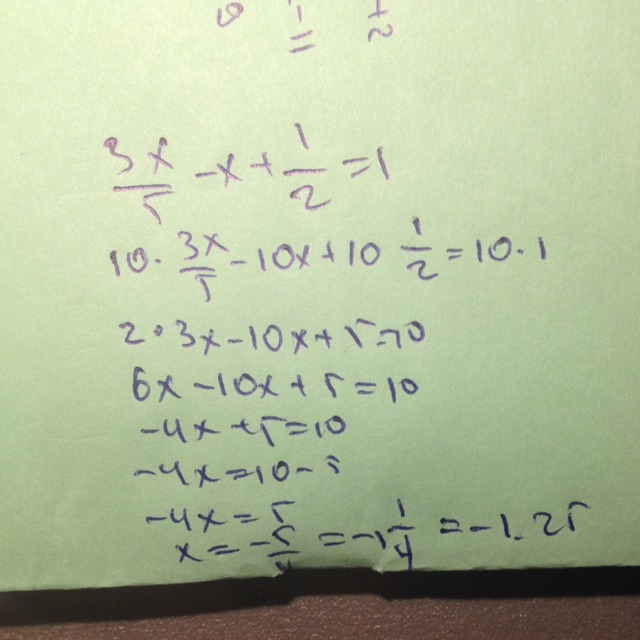 1/= 1/2
3x/5 - x + 1/2 = 1
10 · 3x/5 - 10x + 10 1/2 = 10 · 1
2 · 3x - 10x + 5 = 10
6x - 10x + 5 = 10
-4x + 5 = 10
-4x = 10 - 5
-4x = 5
x = -5/4 = -1 1/4 = -1.25